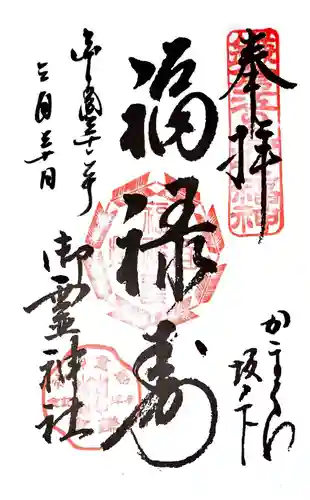 奉拝
かまくら
坂ノ下
福禄寿
御霊神社
平成三十一年
三月三十日